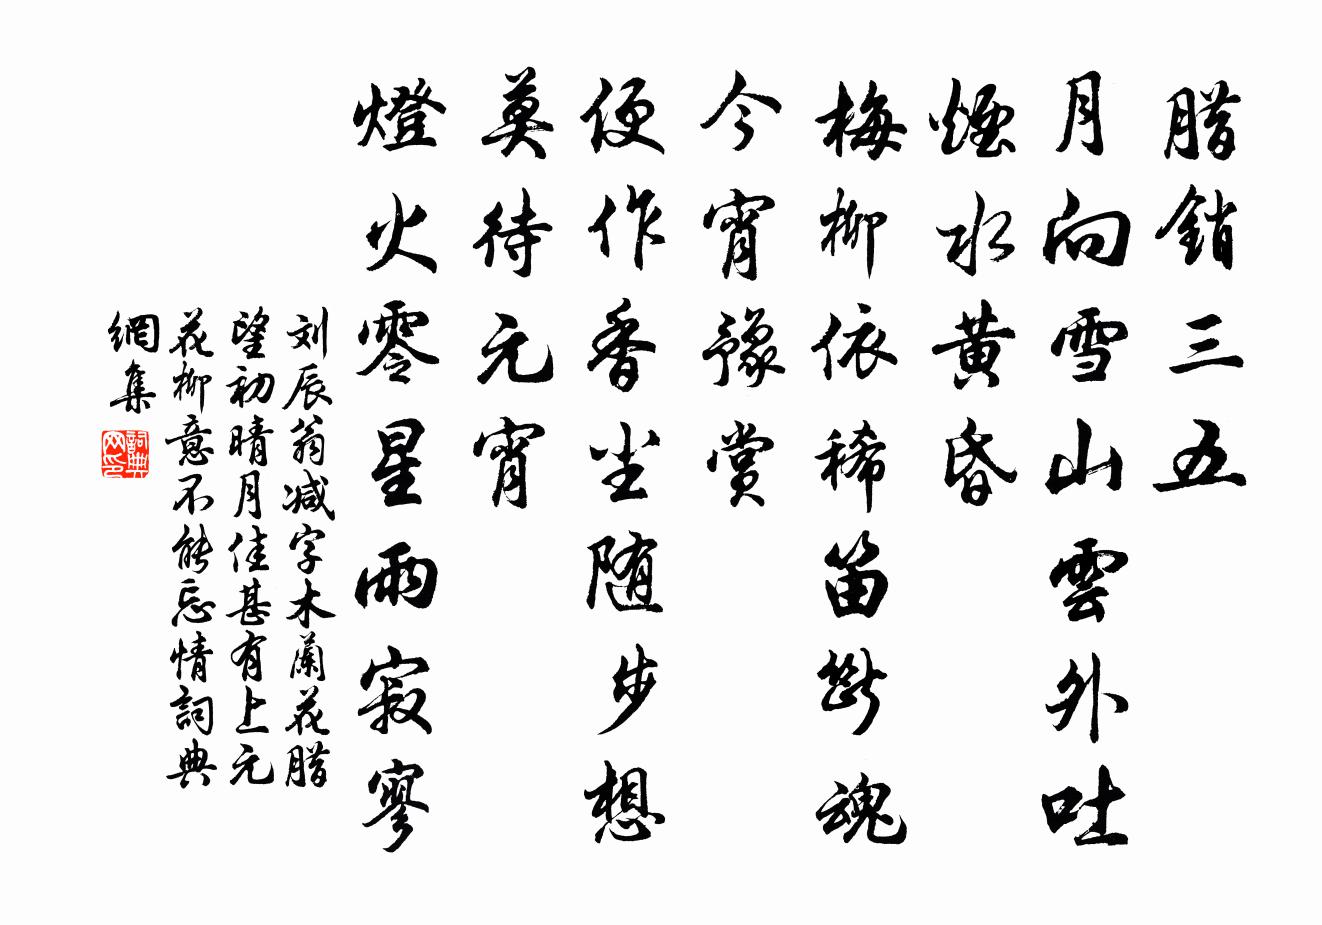 腊銷三五
月向雪山雲外吐
煙水黃昏
梅柳依稀笛斷魂
今宵豫賞
便作香尘随步想
莫待元宵
燈火零星雨寂寥
刘辰翁減字木蘭花腊
望初晴月佳甚有上元
花柳意不能忘情詞典
網集
詞典网印